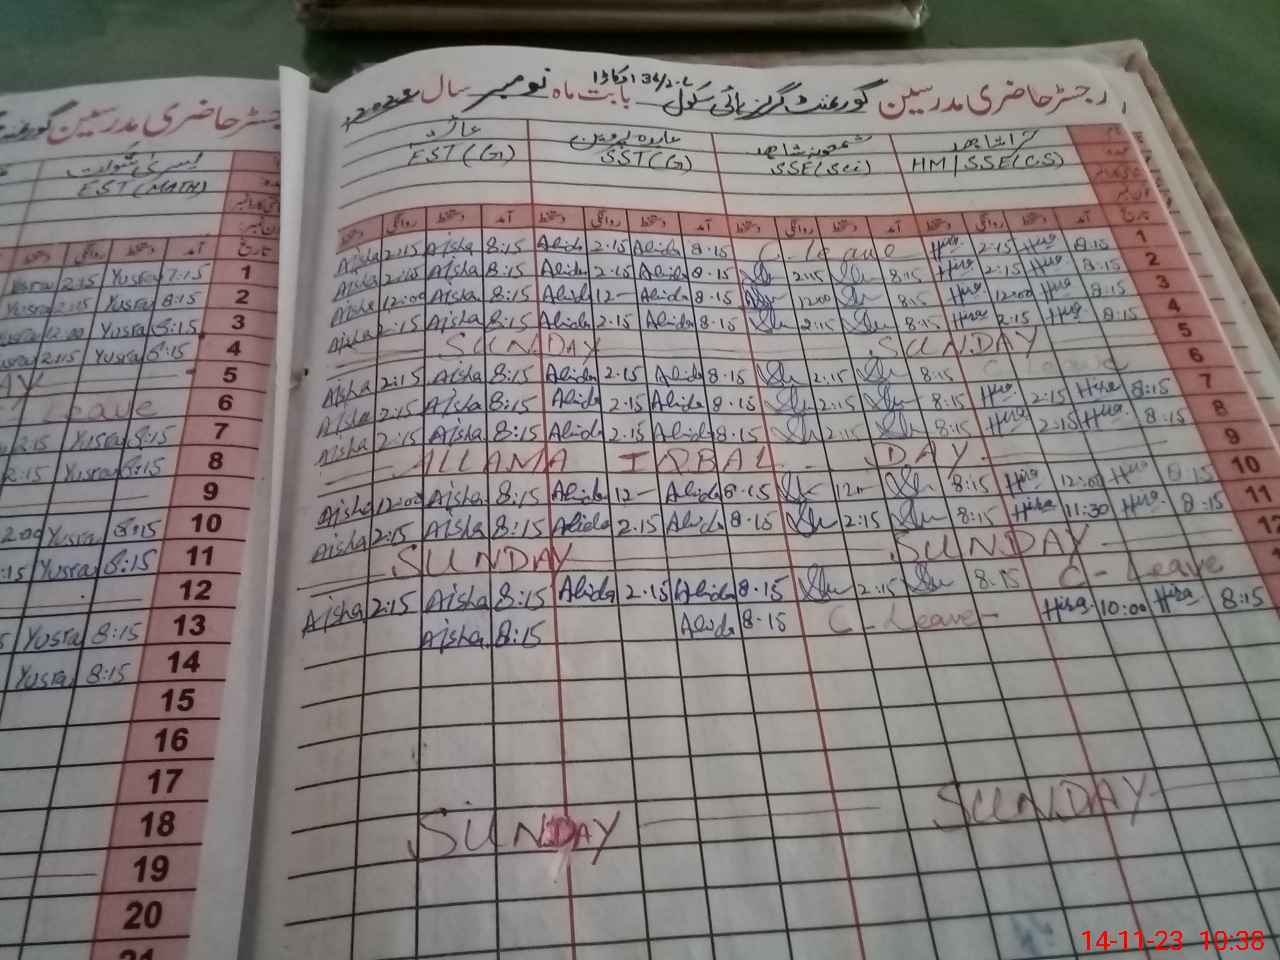 رجسٹر حاضری مدرسین گورنمنٹ گرلز ہائی سکول 36/2-L اوکاڑا بابت ماہ نومبر سال 2023ء
رجسٹر حاضری مدرسین گورنمنٹ
شاہد عابدہ پروین
HM/SSE(C.S) SSE(Sci) SST(G) EST(G)
EST(MATH)
تاریخ آمد دستخط روانگی دستخط آمد دستخط روانگی دستخط آمد دستخط روانگی دستخط آمد دستخط روانگی دستخط
تاریخ آمد دستخط روانگی دستخط
1 8:15 Hira 2:15 Hira C. leave 8.15 Alida 2.15 Alida 8:15 Aisha 2:15 Aisha
2 8:15 Hira 2:15 Hira 8:15 2:15 8.15 Alida 2.15 Alida 8:15 Aisha 2:15 Aisha
3 8:15 Hira 12:00 Hira 8:15 12:00 8.15 Alida 12- Alida 8:15 Aisha 12:00 Aisha
4 8:15 Hira 2:15 Hira 8:15 2:15 8.15 Alida 2.15 Alida 8:15 Aisha 2:15 Aisha
5 SUNDAY SUNDAY
6 C leave 8:15 2:15 8.15 Alida 2.15 Alida 8:15 Aisha 2:15 Aisha
7 8:15 Hira 2:15 Hira 8:15 2:15 8.15 Alida 2.15 Alida 8:15 Aisha 2:15 Aisha
8 8:15 Hira 2:15 Hira 8:15 2:15 8.15 Alida 2.15 Alida 8:15 Aisha 2:15 Aisha
9 ALLAMA IQBAL DAY.
10 8:15 Hira 12:00 Hira 8:15 8.15 Alida 12- Alida 8:15 Aisha 12:00 Aisha
11 8:15 Hira 11:30 Hira 8:15 2:15 8.15 Alida 2.15 Alida 8:15 Aisha 2:15 Aisha
12 SUNDAY SUNDAY
C- Leave 8:15 2:15 8.15 Alida 2.15 Alida 8:15 Aisha 2:15 Aisha
8:15 Hira 10:00 Hira C - Leave - 8.15 Alida 8:15 Aisha
SUNDAY SUNDAY
1 7:15 Yusra 2:15 Yusra
2 8:15 Yusra 2:15 Yusra
3 8:15 Yusra 12:00
4 8:15 Yusra 2:15
5 AY
6 Leave
7 8:15 Yusra 2:15
8 8:15 Yusra 2:15
9
10 8:15 Yusra 2:00
11 8:15 Yusra :15
12
13 8:15 Yusra
14 8:15 Yusra
15
16
17
18
19
20
21
14-11-23 10:38